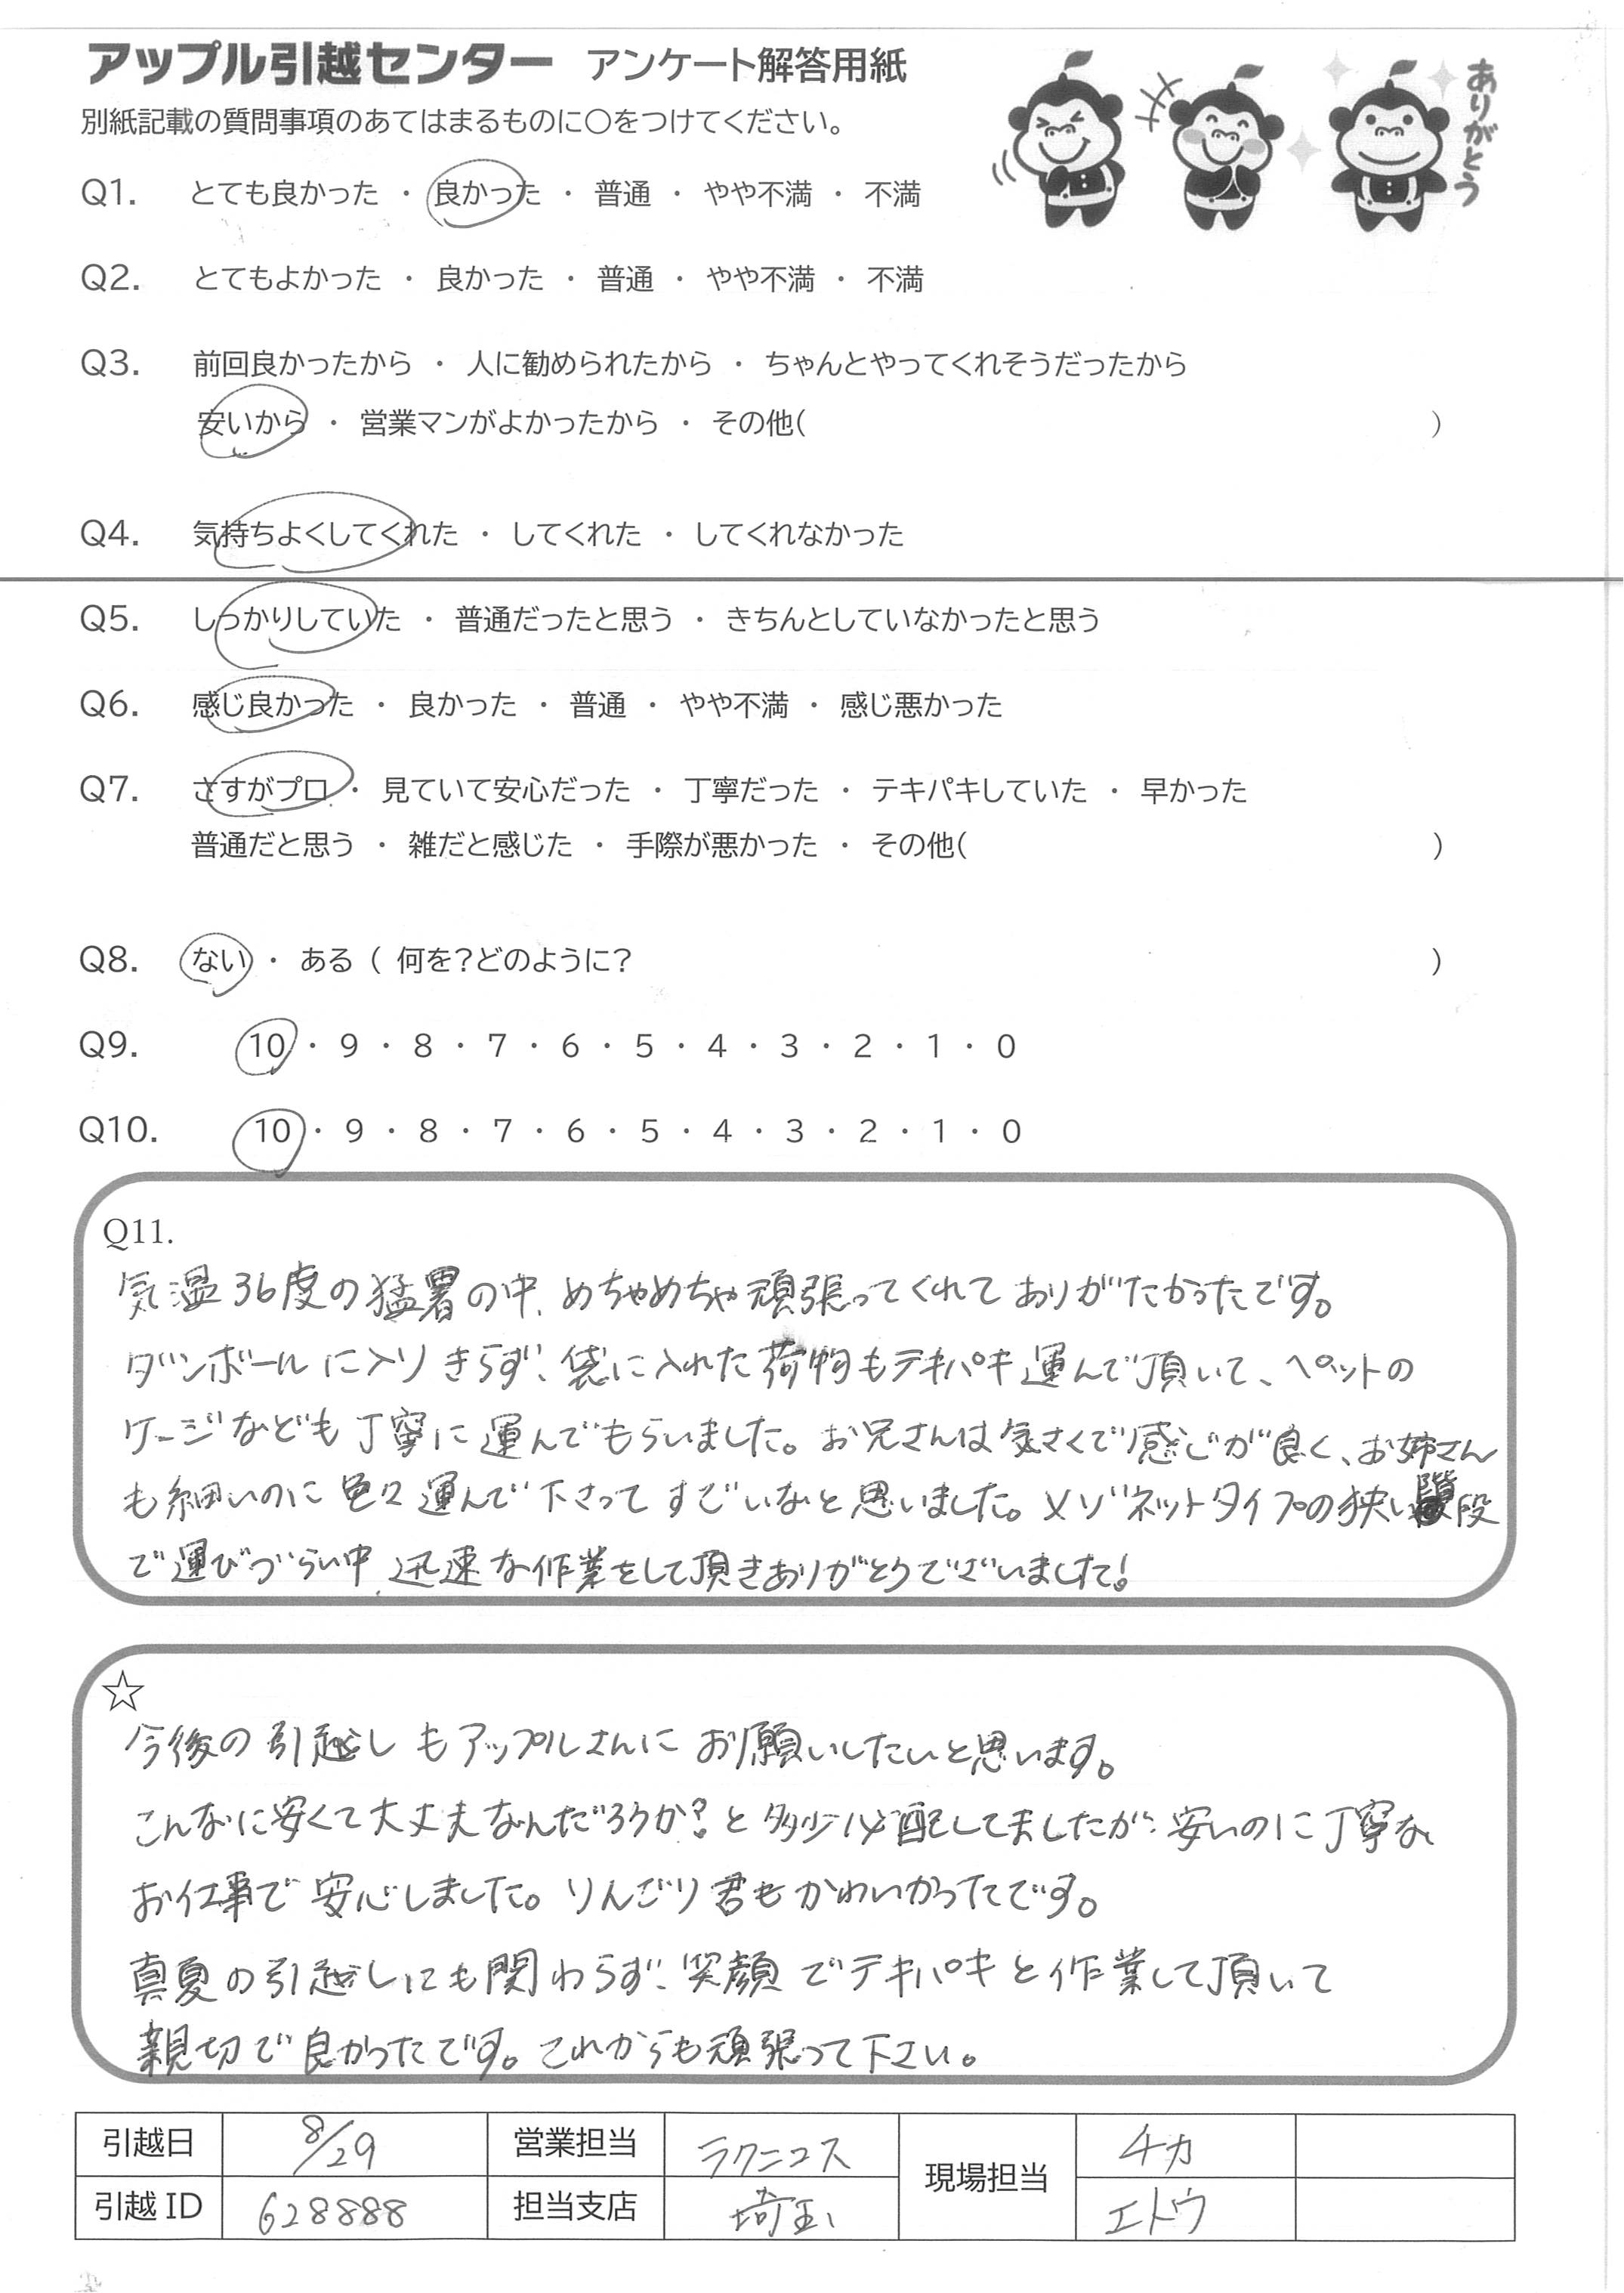 アップル引越センター アンケート解答用紙
ありがとう
別紙記載の質問事項のあてはまるものに〇をつけてください。
Q1. とても良かった ・ 良かった ・ 普通 ・ やや不満 ・ 不満
Q2. とてもよかった ・ 良かった ・ 普通 ・ やや不満 ・ 不満
Q3. 前回良かったから ・ 人に勧められたから ・ ちゃんとやってくれそうだったから
安いから ・ 営業マンがよかったから ・ その他( )
Q4. 気持ちよくしてくれた ・ してくれた ・ してくれなかった
Q5. しっかりしていた ・ 普通だったと思う ・ きちんとしていなかったと思う
Q6. 感じ良かった ・ 良かった ・ 普通 ・ やや不満 ・ 感じ悪かった
Q7. さすがプロ ・ 見ていて安心だった ・ 丁寧だった ・ テキパキしていた ・ 早かった
普通だと思う ・ 雑だと感じた ・ 手際が悪かった ・ その他( )
Q8. ない ・ ある ( 何を?どのように? )
Q9. 10 ・ 9 ・ 8 ・ 7 ・ 6 ・ 5 ・ 4 ・ 3 ・ 2 ・ 1 ・ 0
Q10. 10 ・ 9 ・ 8 ・ 7 ・ 6 ・ 5 ・ 4 ・ 3 ・ 2 ・ 1 ・ 0
Q11.
気温36度の猛暑の中、めちゃめちゃ頑張ってくれてありがたかったです。
ダンボールに入りきらず、袋に入れた荷物もテキパキ運んで頂いて、ペットの
ケージなども丁寧に運んでもらいました。お兄さんは気さくで感じが良く、お姉さん
も細いのに色々運んで下さってすごいなと思いました。メゾネットタイプの狭い階段
で運びづらい中、迅速な作業をして頂きありがとうございました!
☆
今後の引越しもアップルさんにお願いしたいと思います。
こんなに安くて大丈夫なんだろうか?と多少心配してましたが、安いのに丁寧な
お仕事で安心しました。りんごり君もかわいかったです。
真夏の引越しにも関わらず、笑顔でテキパキと作業して頂いて
親切で良かったです。これからも頑張って下さい。
引越日 8/29 営業担当 ラクニコス 現場担当 チカ
引越ID 628888 担当支店 埼玉 エトウ